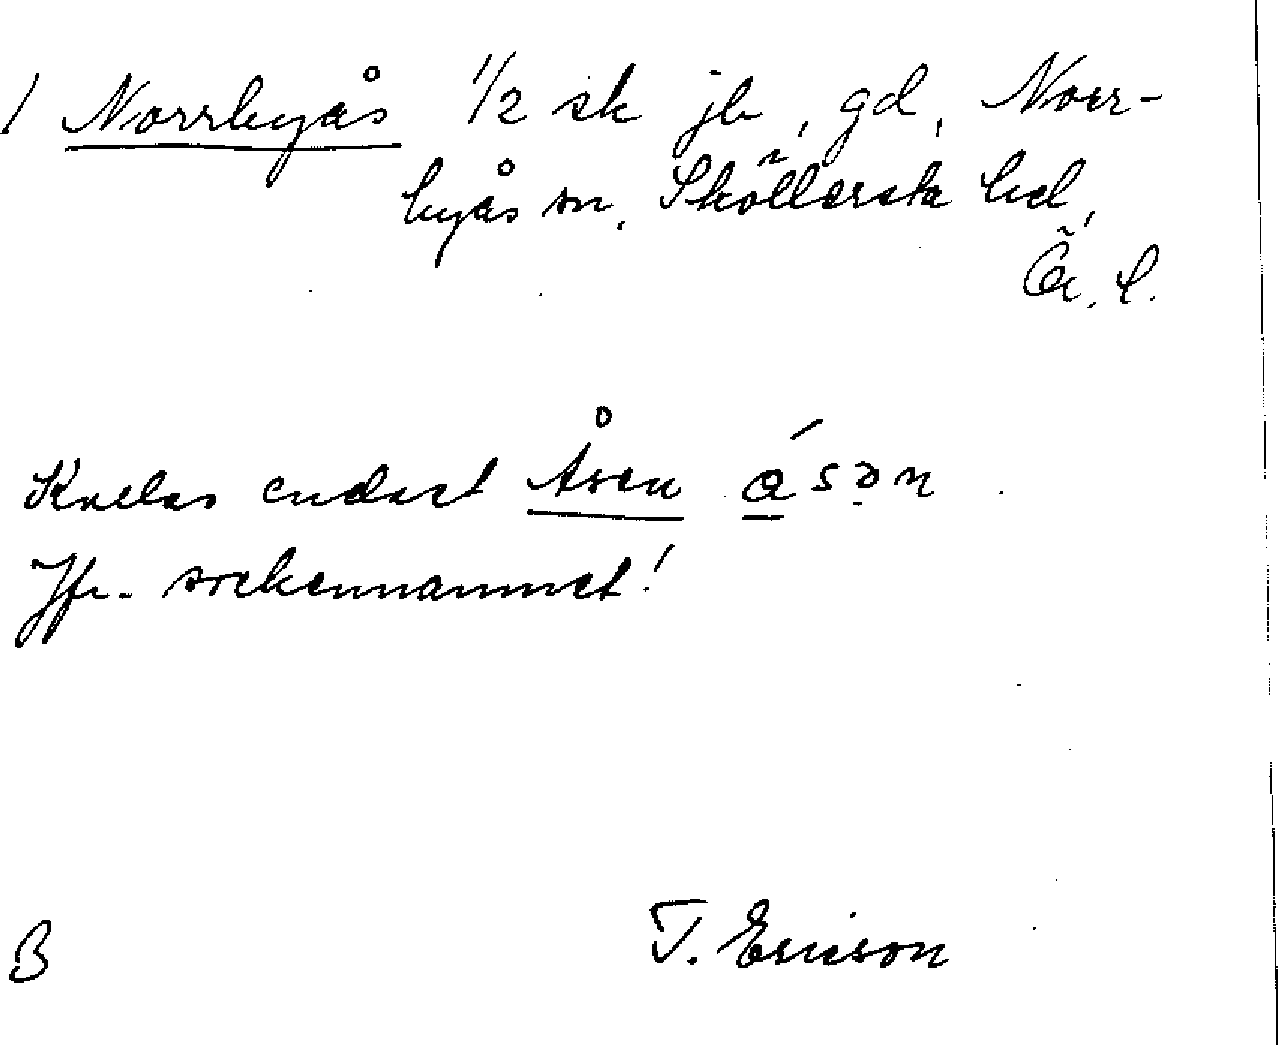 / Norrbyås 1/2 sk jb, gd, Norr-
byås sn, Sköllersta hd,
Ör. l.
Kallas endast Åsen ásən
Jfr. sockennamnet!
B T. Ericson